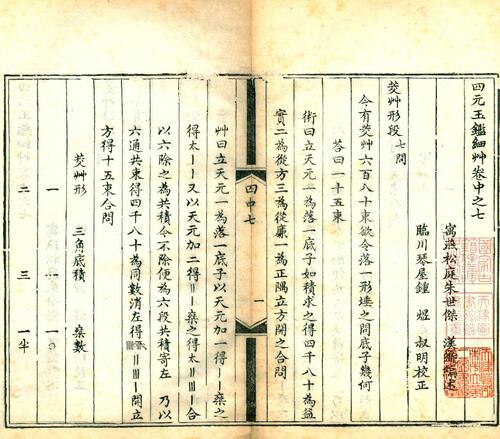 四元玉鑑細艸卷中之七
寓燕松庭朱世傑 漢卿編述
臨川琴屋鍾煜 叔明校正
茭艸形段 七問
今有茭艸六百八十束欲令落一形埵之問底子幾何
荅曰一十五束
術曰立天元一為落一底子如積求之得四千八十為益
實二為從方三為從廉一為正隅立方開之合問
艸曰立天元一為落一底子以天元加一得 桒之
得太 又以天元加二得 桒之得太 合
以六除之為共積今不除便為六段共積寄左 乃以
六通共束得四千八十為同數消左得 開立
方得十五束合問
茭艸形 三角底積 桒數
一 一 一〇
二 三 一半
四中七
一